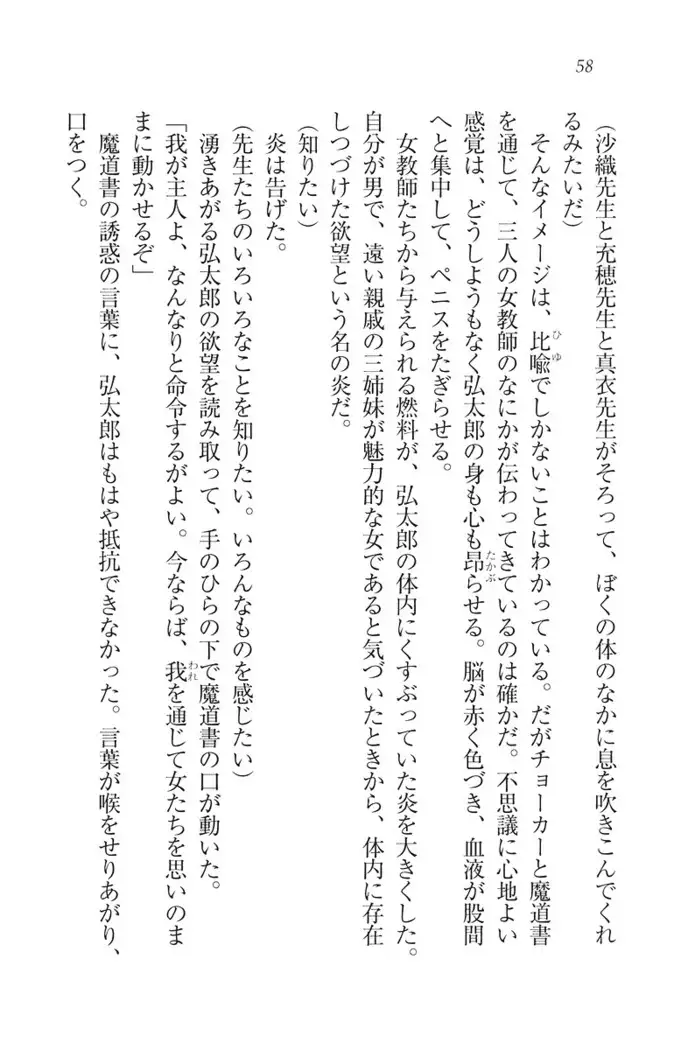 58
(沙織先生と充穂先生と真衣先生がそろって、ぼくの体のなかに息を吹きこんでくれ
るみたいだ)
そんなイメージは、比喩でしかないことはわかっている。だがチョーカーと魔道書
ひゆ
を通じて、三人の女教師のなにかが伝わってきているのは確かだ。不思議に心地よい
感覚は、どうしようもなく弘太郎の身も心も昂らせる。脳が赤く色づき、血液が股間
たかぶ
へと集中して、ペニスをたぎらせる。
女教師たちから与えられる燃料が、弘太郎の体内にくすぶっていた炎を大きくした。
自分が男で、遠い親戚の三姉妹が魅力的な女であると気づいたときから、体内に存在
しつづけた欲望という名の炎だ。
(知りたい)
炎は告げた。
(先生たちのいろいろなことを知りたい。いろんなものを感じたい)
湧きあがる弘太郎の欲望を読み取って、手のひらの下で魔道書の口が動いた。
「我が主人よ、なんなりと命令するがよい。今ならば、我を通じて女たちを思いのま
われ
まに動かせるぞ」
魔道書の誘惑の言葉に、弘太郎はもはや抵抗できなかった。言葉が喉をせりあがり、
口をつく。